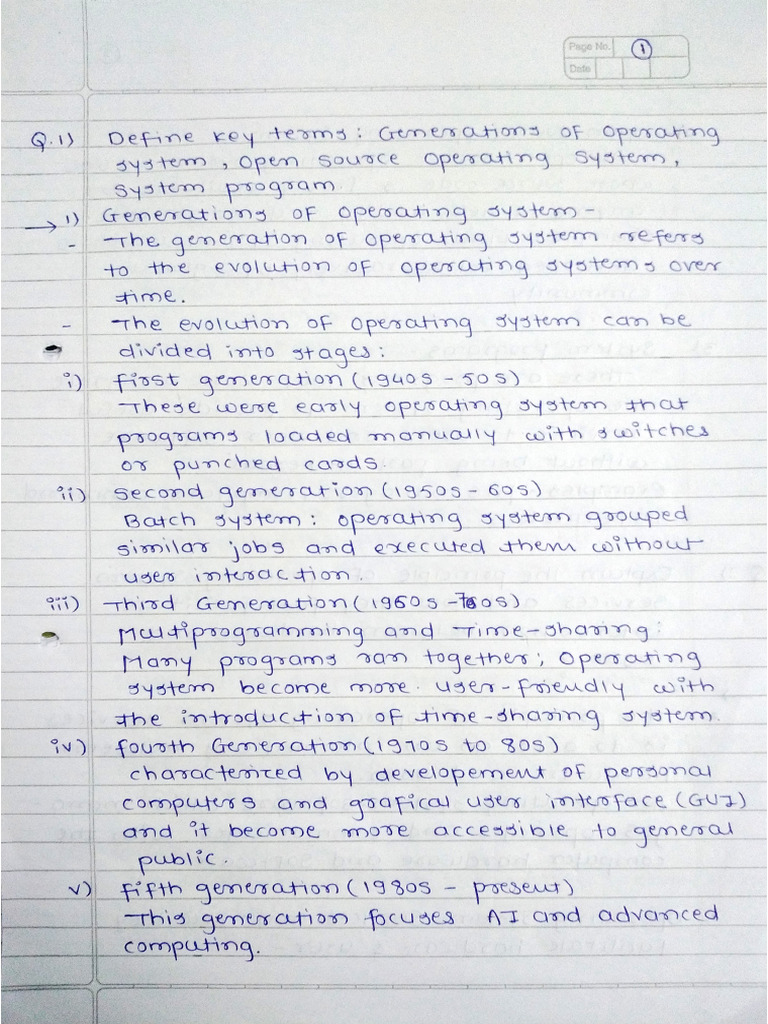 Page No. 1
Date
Q.1) Define key terms: Generations of operating
system, open source operating system,
system program.
→ 1) Generations of operating system -
- The generation of operating system refers
to the evolution of operating systems over
time.
- The evolution of operating system can be
divided into stages:
i) first generation (1940s - 50s)
These were early operating system that
programs loaded manually with switches
or punched cards.
ii) second generation (1950s - 60s)
Batch system: operating system grouped
similar jobs and executed them without
user interaction.
iii) Third Generation (1960s - 70s)
Multiprogramming and Time-sharing:
Many programs ran together; Operating
system become more user-friendly with
the introduction of time-sharing system.
iv) fourth Generation (1970s to 80s)
characterized by developement of personal
computers and grafical user interface (GUI)
and it become more accessible to general
public.
v) fifth generation (1980s - present)
This generation focuses AI and advanced
computing.